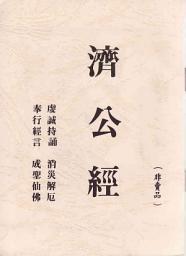 濟公經
（非賣品）
虔誠持誦　消災解厄
奉行經言　成聖仙佛